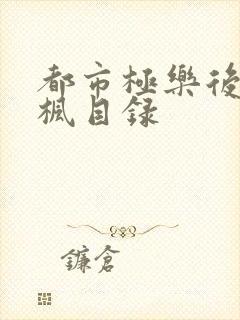 都市極樂後
楓目録
鐮倉